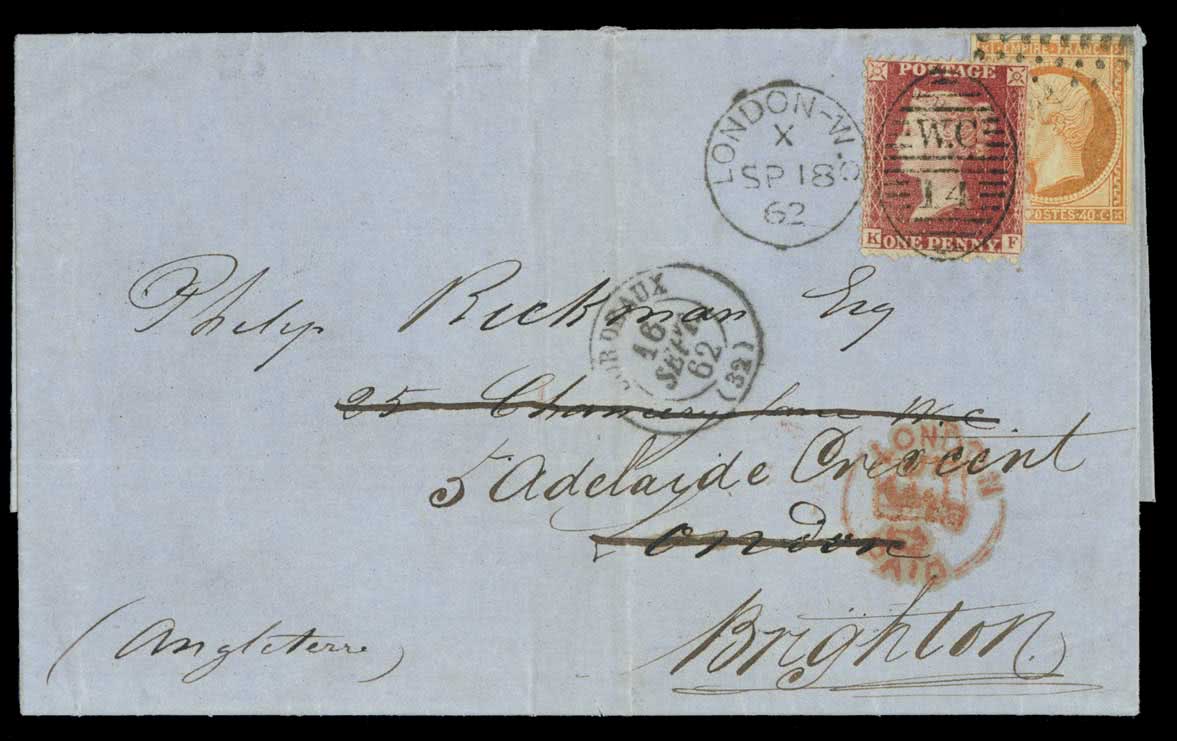 EMPIRE FRANC
POSTES 40 C
POSTAGE
K F
ONE PENNY
W.C
14
LONDON-W.C
X
SP 18
62
BORDEAUX
16
SEPT
62
(32)
Philip Rickman Esq
25 Chancery lane W.C
5 Adelaide Crescent
London
Brighton
(Angleterre)
LONDON
PAID